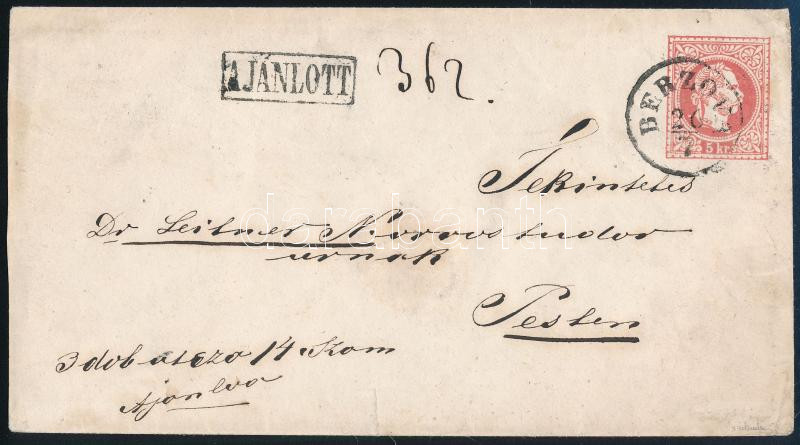 AJÁNLOTT 362.
BERZO
5 kr.
Tekintetes
Dr Leitner N. orvostudor
urnak
Pesten
3 dob utcza 14 szam
Ajanlva
darabanth